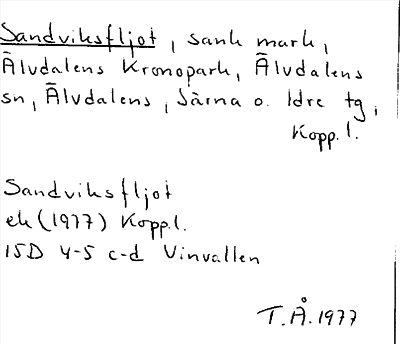 Sandviksfljot, sank mark,
Älvdalens Kronopark, Älvdalens
sn, Älvdalens, Särna o. Idre tg,
Kopp.l.
Sandviksfljot
ek (1977) Kopp.l.
15D 4-5 c-d Vinvallen
T.Å. 1977